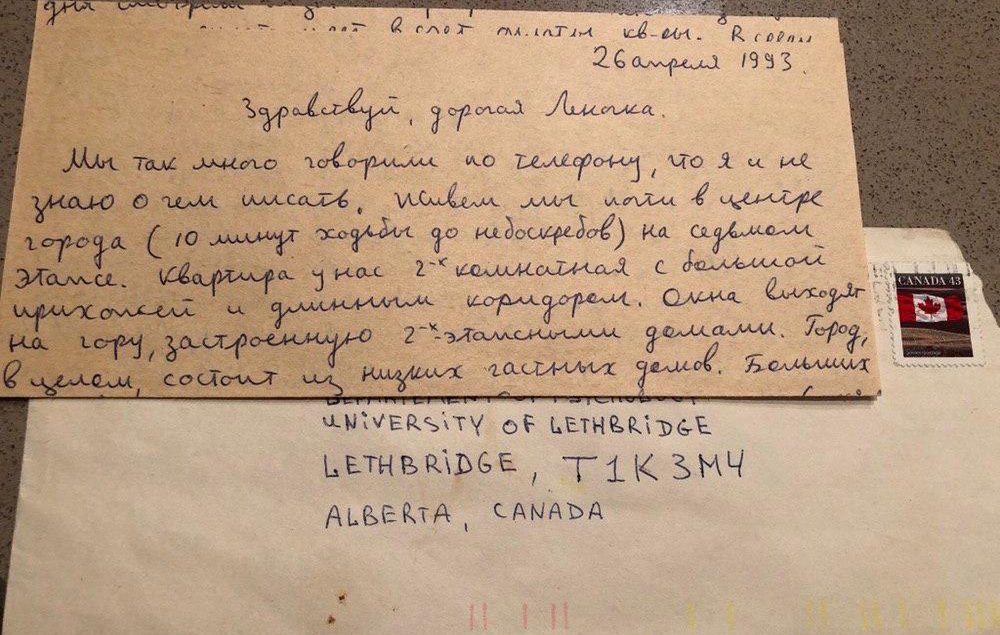 кв-ры. В
26 апреля 1993.
Здравствуй, дорогая Леночка.
Мы так много говорили по телефону, что я и не
знаю о чем писать. Живем мы почти в центре
города (10 минут ходьбы до небоскребов) на седьмом
этаже. Квартира у нас 2-х комнатная с большой
прихожей и длинным коридором. Окна выходят
на гору, застроенную 2-х-этажными домами. Город,
в целом, состоит из низких частных домов. Больших
CANADA 43
UNIVERSITY OF LETHBRIDGE
LETHBRIDGE, T1K 3M4
ALBERTA, CANADA